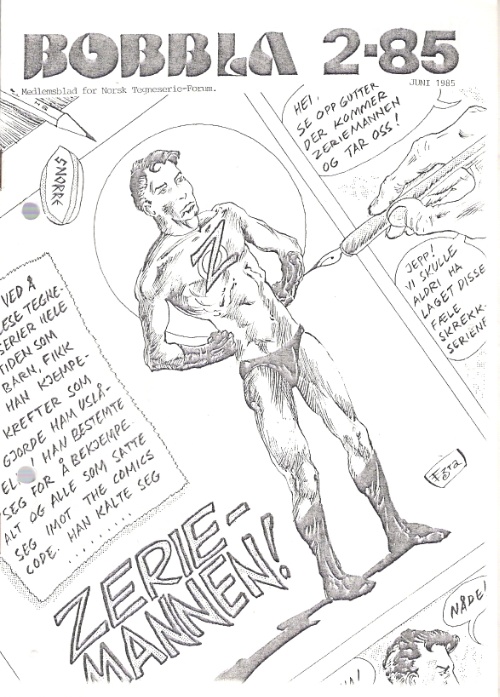 BOBBLA 2-85
Medlemsblad for Norsk Tegneserie-Forum.
JUNI 1985
HEI,
SE OPP GUTTER
DER KOMMER
ZERIEMANNEN
OG TAR OSS!
SNORRE
JEPP!
VI SKULLE
ALDRI HA
LAGET DISSE
FÆLE
SKREKK-
SERIENE
VED Å
LESE TEGNE-
SERIER HELE
TIDEN SOM
BARN, FIKK
HAN KJEMPE-
KREFTER SOM
GJORDE HAM USLÅ-
EL ! HAN BESTEMTE
SEG FOR Å BEKJEMPE
ALT OG ALLE SOM SATTE
SEG IMOT THE COMICS
CODE. HAN KALTE SEG
..........
Z
ZERIE-
MANNEN!
NÅDE!